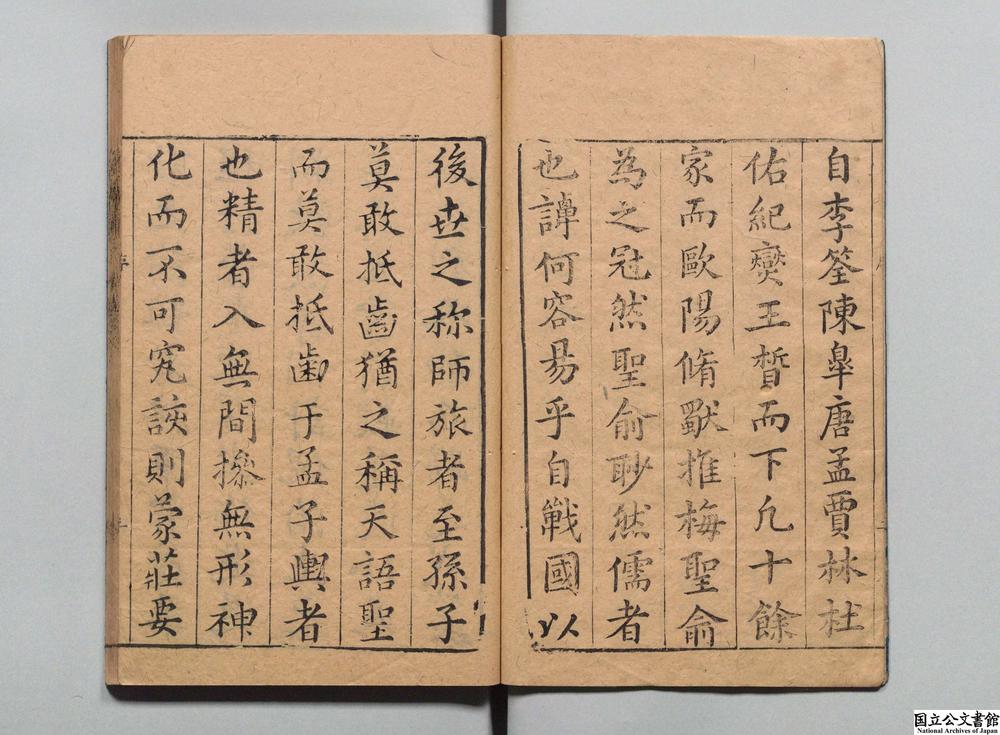 自李筌陳皐唐孟賈林杜
佑紀爕王晳而下凡十餘
家而歐陽脩獸推梅聖俞
為之冠然聖俞眇然儒者
也譚何容易乎自戰國以
後世之称師旅者至孫子
莫敢抵齒猶之稱天語聖
而莫敢抵齒于孟子輿者
也精者入無間摻無形神
化而不可究詼則蒙莊要
国立公文書館
National Archives of Japan